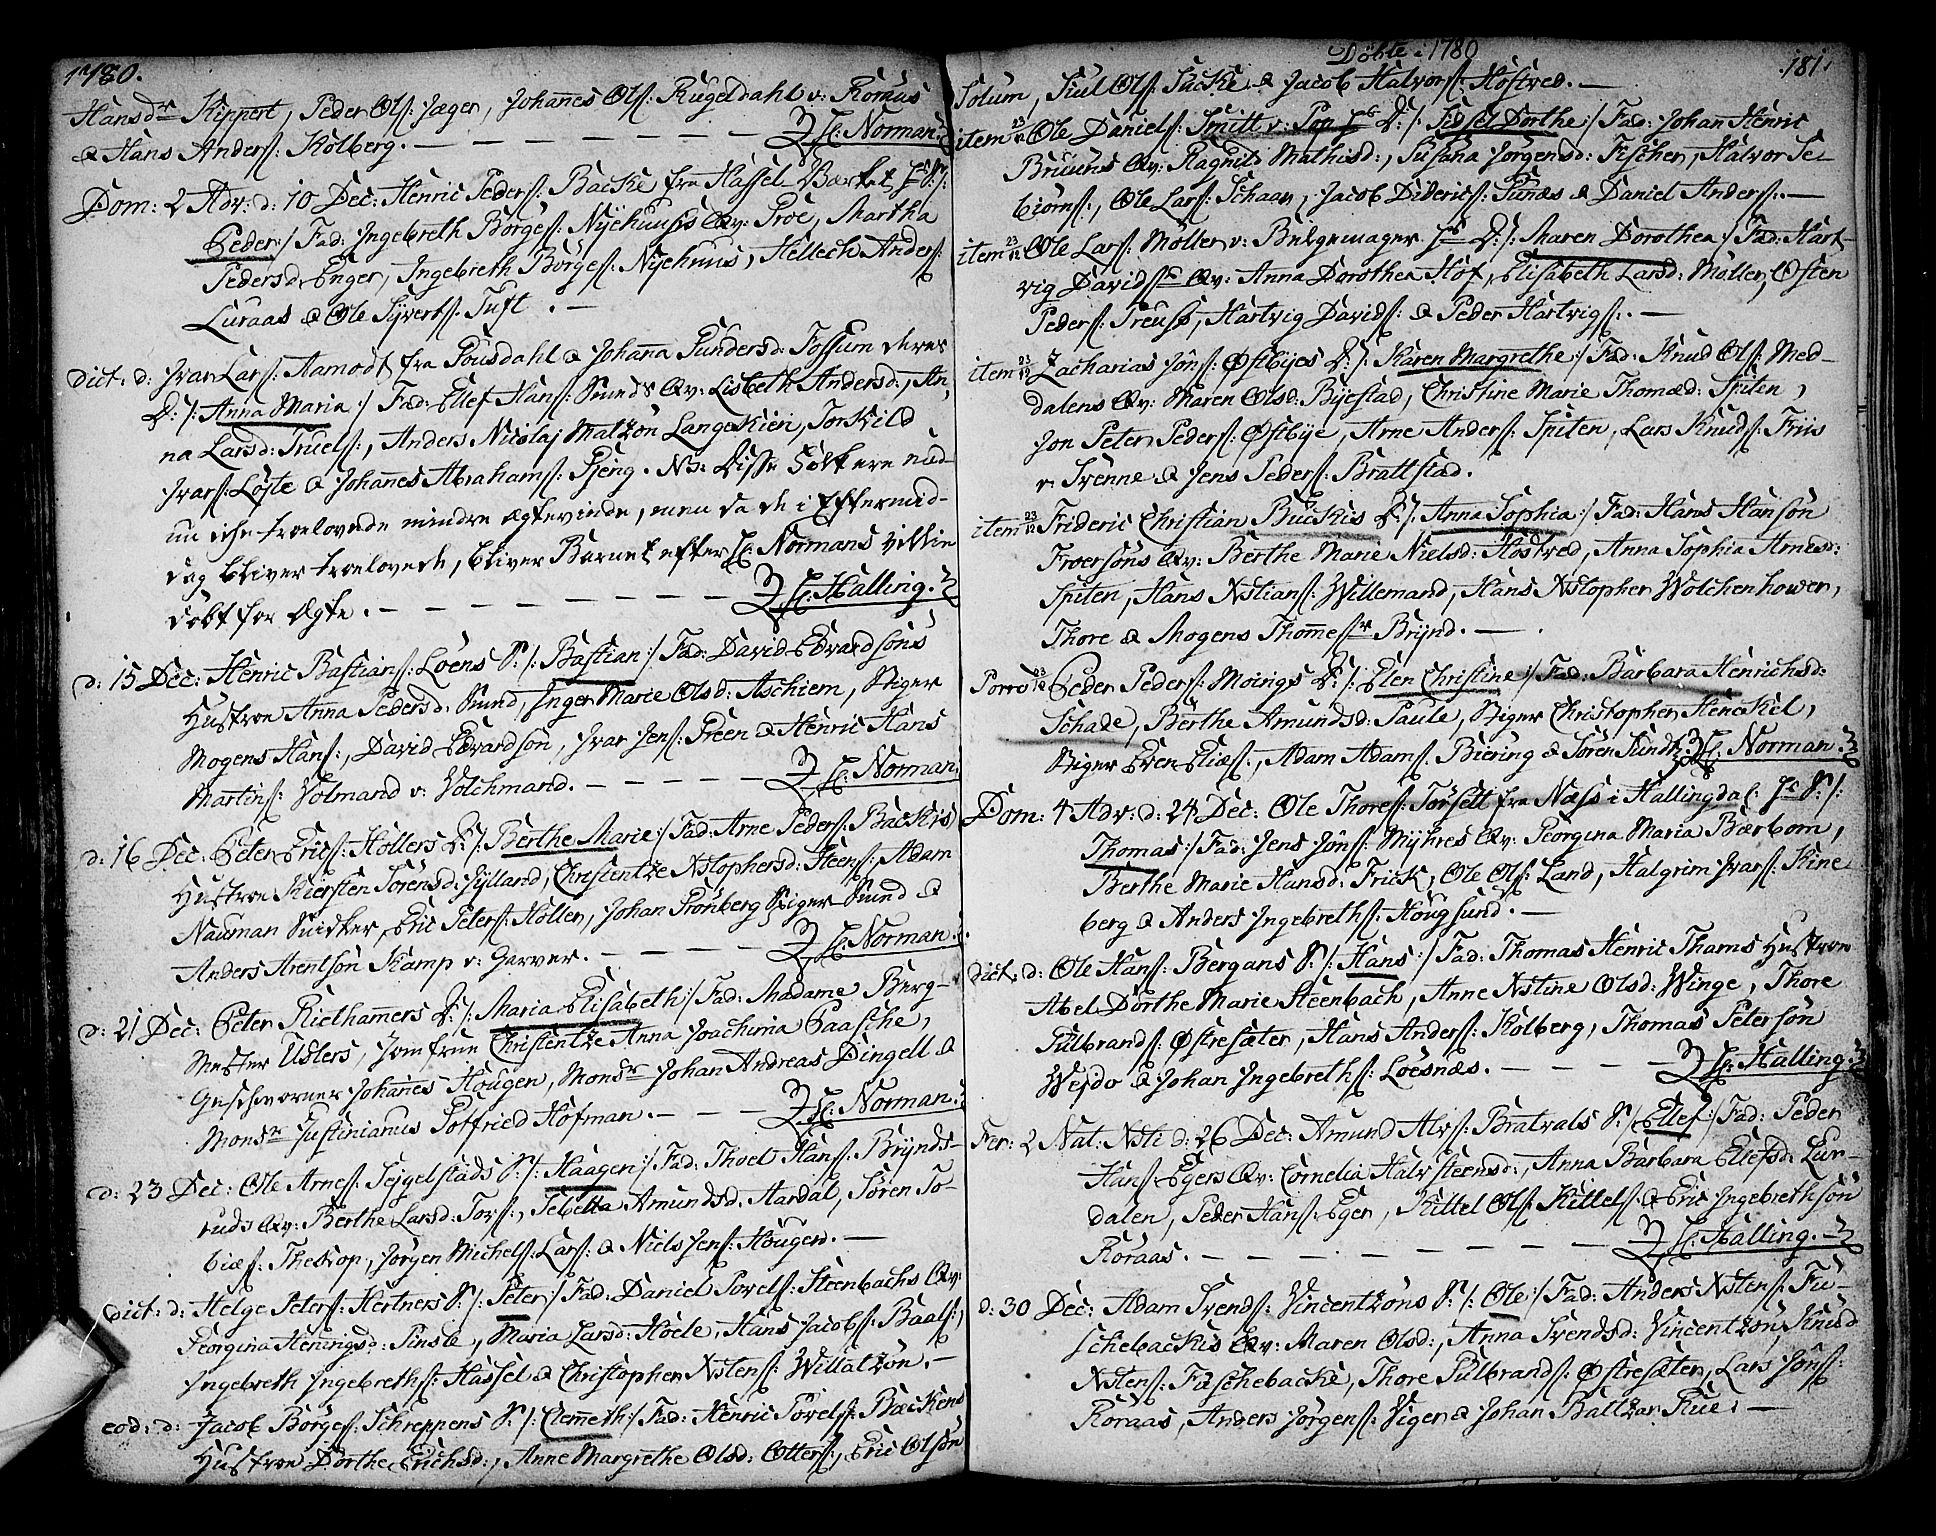 1780.
Hansdr Kippert, Peder Ols: Jæger, Johañes Ols: Rugeldahl v: Roraas
& Hans Anders: Kolberg. — — — — — H: Norman.
Dom: 2 Adv: d: 10 Dec: Henric Peders: Backe fra Hassel Værket S:/:
Peder:/ Fad: Ingebreth Börges: Nÿehuuss Qv: Martha
Pedersd: Enger, Ingebreth Börges: Nÿehuus, Hellech Anders:
Luraas & Ole Sÿverts: Tuft. —
dict: d: Ivar Lars: Aamodt fra Pousdahl & Johaña Gundersd: Fossum deres
D:/: Anna Maria:/ Fad: Ellef Hans: Sunds Qv: Lisbeth Andersd:, An,
na Larsd: Truels:, Anders Nicolaj Matzon Langeskien, Torkild
Ivars: Löjte & Johañes Abrahams: Pjeng. NB: Disse Folk ere nad
nu ikke troelovede mindre Ægteviede, men da de i Eftermid-
dag bliver troelovede, bliver Barnet efter H: Normans villie
döbt for Ægte. — — — — — H: Halling.
d: 15 Dec: Henric Bastians: Loens S:/: Bastian:/ Fad: David Edvardsöns
Hustroe Anna Pedersd: Sund, Inger Marie Olsd: Aschiem, Stiger
Mogens Hans:, David Edvardsön, Ivar Jens: Green & Henric Hans
Martins: Volmand v: Volchmand. — — — — H: Norman.
d: 16 Dec: Peter Erics: Hollers D:/: Berthe Marie:/ Fad: Arne Peders: Backes
Hustroe Kiersten Sörensd: Jÿlland, Christentze Xstophersd: Steens:, Adam
Nauman Snidker, Eric Peters: Holler, Johan Grönberg Stiger Sund &
Anders Arentsön Kamp v: Garver. — — — H: Norman.
d: 21 Dec: Peter Riethamers D:/: Maria Elisabeth:/ Fad: Madame Berg-
Mester Uslers, Jomfrue Christentze Anna Joachima Paasche,
Geschworner Johañes Hougen, Monsr Johan Andreas Dingell &
Monsr Justinianus Gotfried Hofman. — — — H: Norman.
d: 23 Dec: Ole Arnes: Tejgelstads S:/: Haagen:/ Fad: Thoel Hans: Brÿnds-
ruds Qv: Berthe Larsd: Tors:, Sebetta Amundsd: Aardal, Sören To-
biæs: Thestrop, Jörgen Michels: Lars: & Niels Jens: Hougen. —
dict: d: Helge Peters: Hertners S:/: Peter:/ Fad: Daniel Povels: Steenbachs Qv:
Georgina Heningsd: Pinsle, Maria Larsd: Hoele, Hans Jacobs: Baals:,
Ingebreth Ingebreths: Hassel & Christopher Xstens: Willatzön. —
eod: d: Jacob Börges: Schreppens S:/: Clemeth:/ Fad: Henric Povels: Bæckens
Hustroe Dorthe Erichsd:, Anne Margrethe Olsd: Otters:, Eric Olsön
Döbte 1780
181.
Solum, Juul Ols: Sacke & Jacob Halvors: Hostved. —
item 23/12 Ole Daniels: Smitt v: D:/: Sidsel Dorthe:/ Fad: Johan Henric
Bruuns Qv: Ragnild Mathisd:, Susaña Jörgensd: Fischer, Halvor Se-
biörns:, Ole Lars: Schaar, Jacob Diderics: Funæs & Daniel Anders:. —
item 23/12 Ole Lars: Möller v: Belgemager D:/: Maren Dorothea:/ Fad: Hart-
vig Davids: Qv: Anna Dorothea Hof, Elisabeth Larsd: Möller, Osten
Peders: Treuss, Hartvig Davids: & Peder Hartvigs:. —
item 23/12 Zacharias Jöns: Östbÿes D:/: Karen Margrethe:/ Fad: Knud Ols: Med-
dalens Qv: Maren Olsd: Bÿestad, Christine Marie Thomæd: Spiten,
Jon Peter Peders: Östbÿe, Arne Anders: Spiten, Lars Knuds: Friis
v: Svenne & Jens Peders: Brattstad.
item 23/12 Frideric Christian Buckus D:/: Anna Sophia:/ Fad: Hans Hansön
Froersöns Qv: Berthe Marie Nielsd: Hostved, Anna Sophia Arnesd:
Spiten, Hans Xstians: Willemand, Hans Xstopher Wolchenhower,
Thore & Mogens Thomesr Brÿnd. —
Porro 23/12 Peder Peders: Moirigs D:/: Elen Christine:/ Fad: Barbara Henrichsd:
Schade, Berthe Amundsd: Paule, Stiger Christopher Henckel,
Stiger Even Eliæs:, Adam Adams: Biering & Sören Sundt. H: Norman.
Dom: 4 Adv: d: 24 Dec: Ole Thores: Torsett fra Næss i Hallingdal S:/:
Thomas:/ Fad: Jens Jöns: Mÿhres Qv: Georgina Maria Bærbom,
Berthe Marie Hansd: Frick, Ole Ols: Land, Halgrim Ivars: Kine
berg & Anders Ingebreths: Hougsund. —
dict: d: Ole Hans: Bergans S:/: Hans:/ Fad: Thomas Henric Thams Hustroe
Abel Dorthe Marie Steenbach, Anne Xstine Olsd: Winge, Thore
Gulbrands: Östresæter, Hans Anders: Kolberg, Thomas Petersön
Wejdo & Johan Ingebreths: Loesnæs. — — — H: Halling.
Fer: 2 Nat: Xsti d: 26 Dec: Amund Alvs: Bratvals S:/: Ellef:/ Fad: Peder
Hans: Egers Qv: Cornelia Halvsteensd:, Anna Barbara Ellefsd: Lur-
dalen, Peder Hans: Eger, Kittel Ols: Kittels: & Eric Ingebrethsön
Roraas. — — — — — — H: Halling.
d: 30 Dec: Adam Svends: Vincentzöns S:/: Ole:/ Fad: Anders Xstens: Fu-
schebackis Qv: Maren Olsd:, Anna Svendsd: Vincentzön, Knud
Xstens: Faschebacke, Thore Gulbrands: Östresæter, Lars Jöns:
Roraas, Anders Jörgens: Viger & Johan Baltzar Rue. —